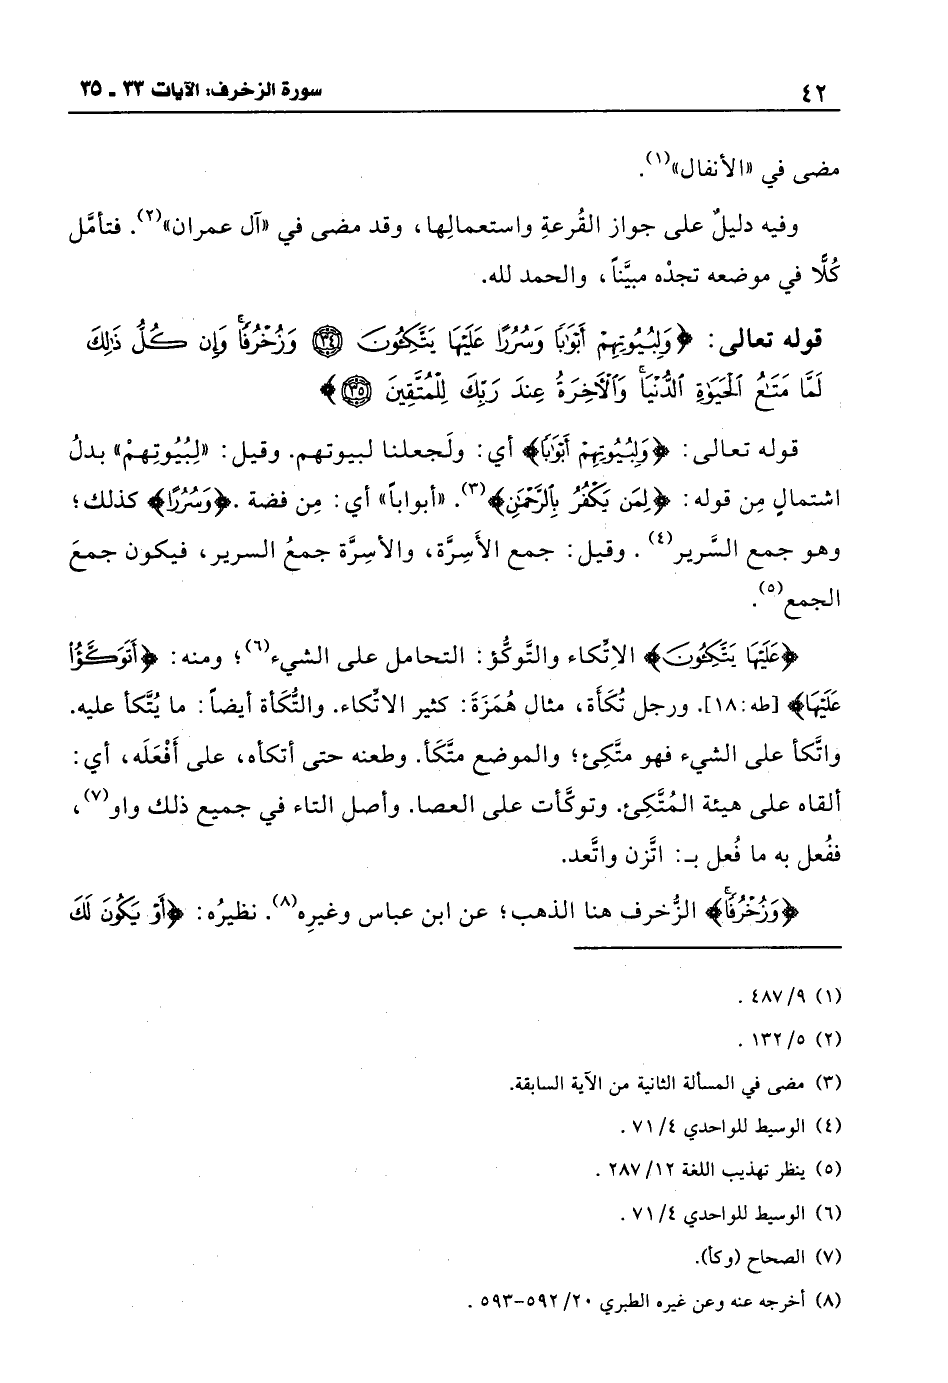 ٤٢
سورة الزخرف: الآيات ٣٣ ـ ٣٥
مضى في «الأنفال»(١).
وفيه دليلٌ على جواز القُرعةِ واستعمالِها، وقد مضى في «آل عمران»(٢). فتأمَّل
كُلًّا في موضعه تجدْه مبيَّناً، والحمد لله.
قوله تعالى: ﴿وَلِبُيُوتِهِمْ أَبْوَٰبًا وَسُرُرًا عَلَيْهَا يَتَّكِـُٔونَ ٣٤ وَزُخْرُفًا ۚ وَإِن كُلُّ ذَٰلِكَ
لَمَّا مَتَـٰعُ الْحَيَوٰةِ الدُّنْيَا ۚ وَالْـَٔاخِرَةُ عِندَ رَبِّكَ لِلْمُتَّقِينَ ٣٥﴾
قوله تعالى: ﴿وَلِبُيُوتِهِمْ أَبْوَٰبًا﴾ أي: ولَجعلنا لبيوتهم. وقيل: «لِبُيُوتِهمْ» بدلُ
اشتمالٍ مِن قوله: ﴿لِمَن يَكْفُرُ بِالرَّحْمَٰنِ﴾(٣). «أبواباً» أي: مِن فضة .﴿وَسُرُرًا﴾ كذلك؛
وهو جمع السَّرير(٤) . وقيل: جمع الأَسِرَّة، والأسِرَّة جمعُ السرير، فيكون جمعَ
الجمع(٥).
﴿عَلَيْهَا يَتَّكِـُٔونَ﴾ الاتِّكاء والتَّوكُّؤ: التحامل على الشيء(٦)؛ ومنه: ﴿أَتَوَكَّؤُا۟
عَلَيْهَا﴾ [طه:١٨]. ورجل تُكَأَة، مثال هُمَزَة: كثير الاتِّكاء. والتُّكَأة أيضاً: ما يُتَّكأ عليه.
واتَّكأ على الشيء فهو متَّكِئ؛ والموضع متَّكَأ. وطعنه حتى أتكأه، على أَفْعَلَه، أي:
ألقاه على هيئة المُتَّكِئ. وتوكَّأت على العصا. وأصل التاء في جميع ذلك واو(٧)،
ففُعل به ما فُعل بـ: اتَّزن واتَّعد.
﴿وَزُخْرُفًا ۚ﴾ الزُّخرف هنا الذهب؛ عن ابن عباس وغيرِه(٨). نظيرُه: ﴿أَوْ يَكُونَ لَكَ
(١) ٤٨٧/٩ .
(٢) ١٣٢/٥ .
(٣) مضى في المسألة الثانية من الآية السابقة.
(٤) الوسيط للواحدي ٧١/٤ .
(٥) ينظر تهذيب اللغة ٢٨٧/١٢ .
(٦) الوسيط للواحدي ٧١/٤ .
(٧) الصحاح (وكأ).
(٨) أخرجه عنه وعن غيره الطبري ٥٩٢/٢٠-٥٩٣ .